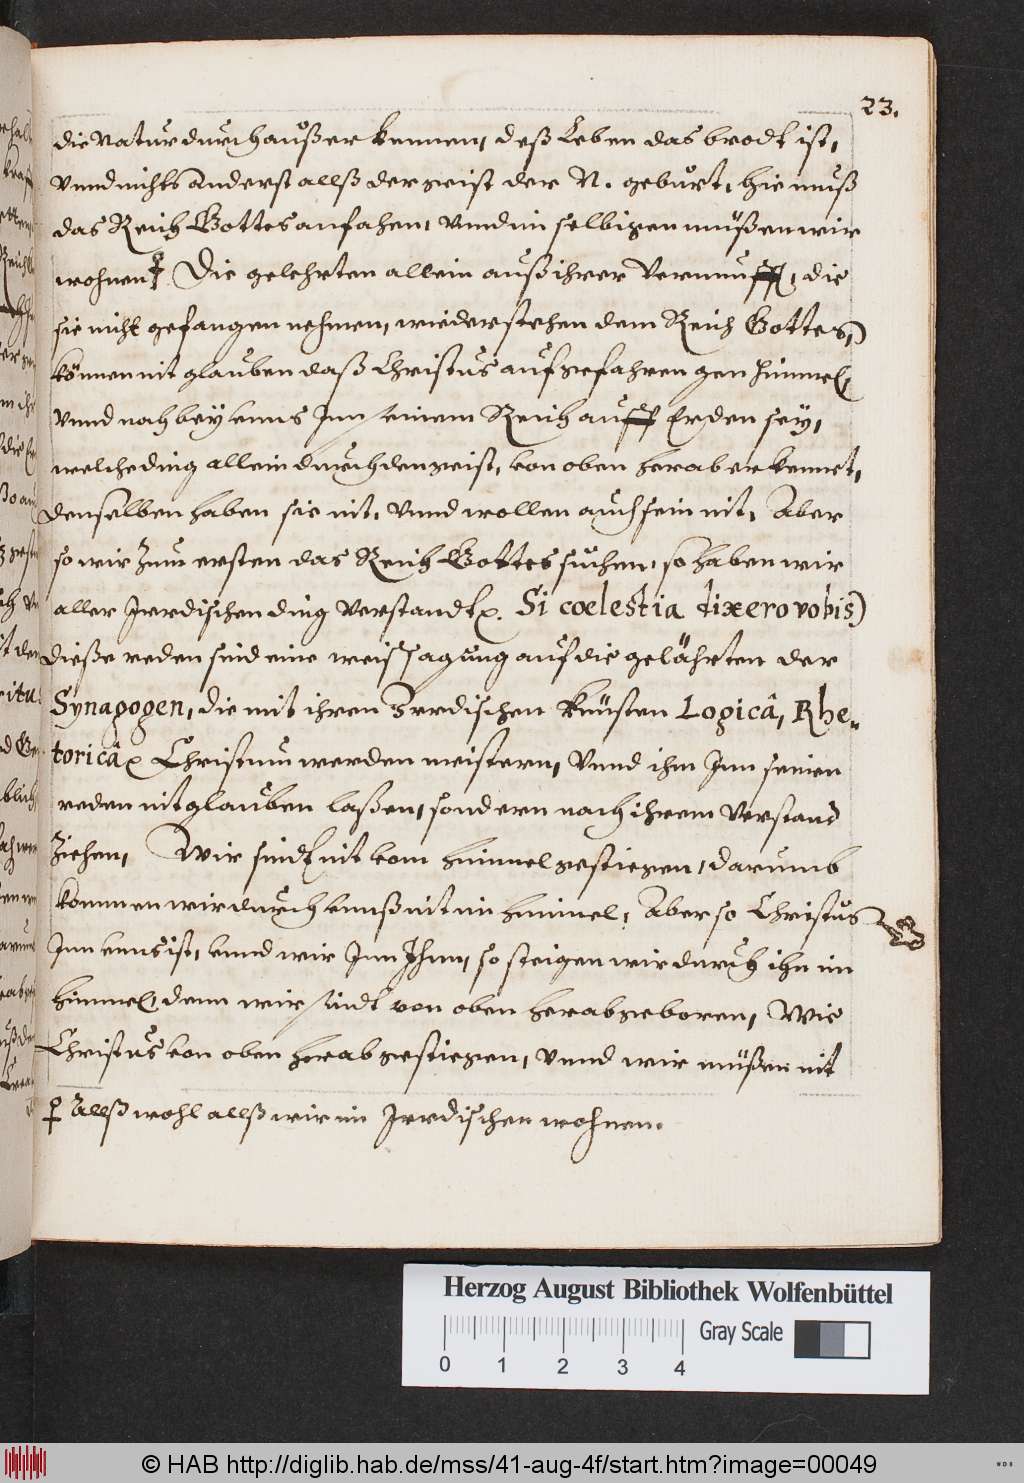 23.
die Natur durch außer kennen, deß Leben das brodt ist,
Vnnd nichts anderst allß der geist der N. geburt, hie muß
das Reich Gottes anfahen, Vnnd im selbigen müßen wir
wohnen Die gelehrten allein auß ihrer Vernunfft, die
sie nicht gefangen nehmen, wiederstehen dem Reich Gottes,
können nit glauben daß Christus aufgefahren gen himmel,
Vnnd noch bey vnns Inn einem Reich auff Erden sey,
welche ding allein durch den geist, von oben herab erkennet,
denselben haben sie nit, Vnnd wollen auch sein nit, Aber
so wir Zum ersten das Reich Gottes suchen, so haben wir
aller Irrdischen ding Verstandt. Si cœlestia dixero vobis)
dieße reden sind eine weissagung auf die gelährten der
Synagogen, die mit ihren Irrdischen Künsten Logicâ, Rhe„
toricâ Christum werden meistern, Vnnd ihn Inn seinen
reden nit glauben laßen, sondern nach ihrem Verstand
Ziehen, Wir sindt nit vom himmel gestiegen, darumb
kommen wir durch vnnß nit im himmel, Aber so Christus
Inn vnns ist, vnnd wir Inn Ihm, so steigen wir durch ihn im
himmel, denn wir sindt von oben herab geboren, Wie
Christus von oben herab gestiegen, Vnnd wir müßen nit
Allß wohl allß wir im Irrdischen wohnen.
Herzog August Bibliothek Wolfenbüttel
Gray Scale
0 1 2 3 4
© HAB http://diglib.hab.de/mss/41-aug-4f/start.htm?image=00049